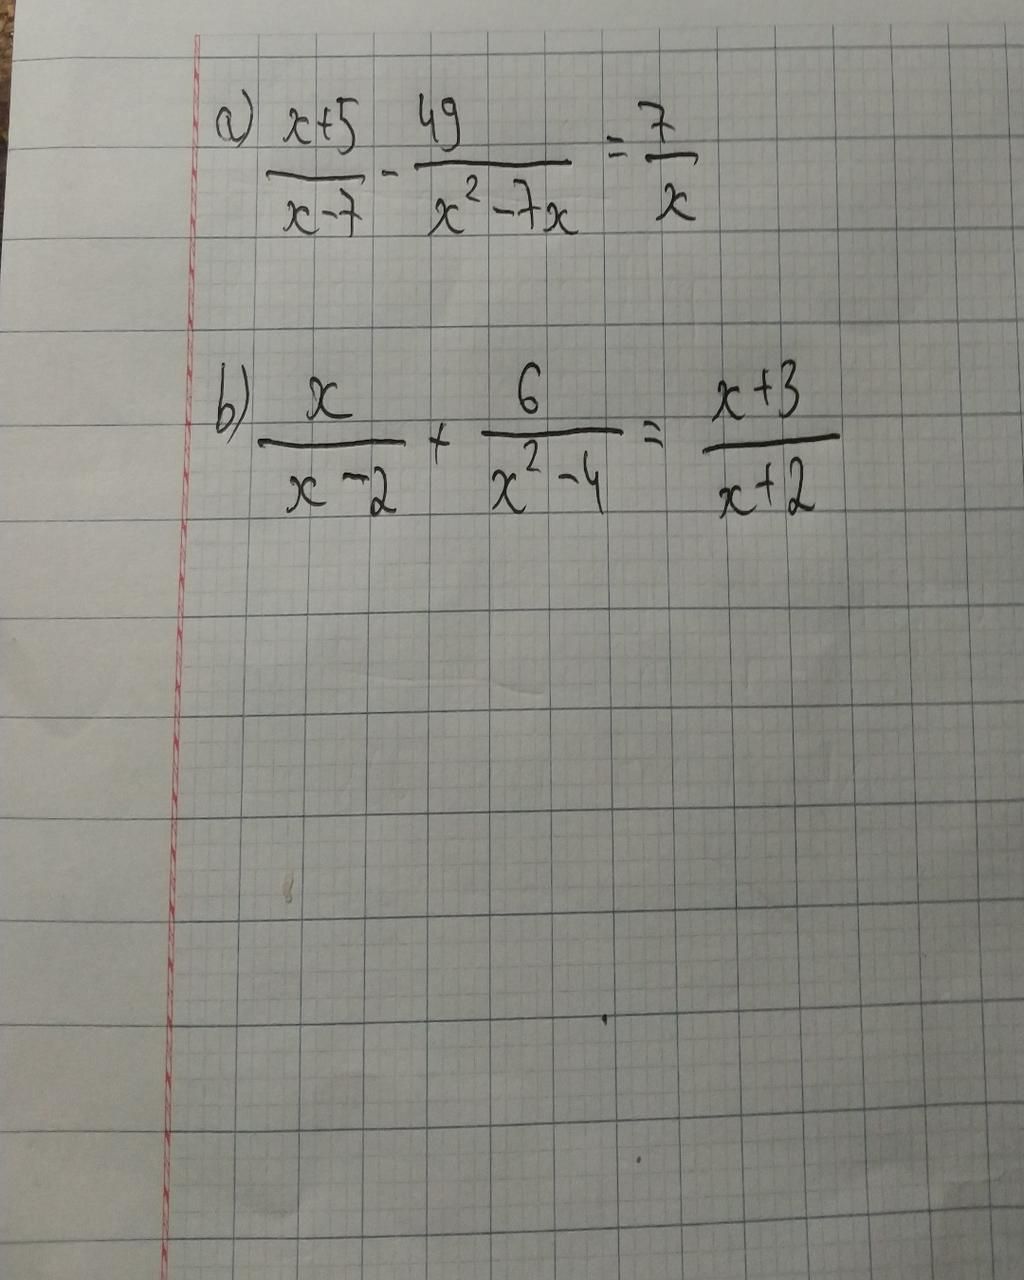 a) \frac{x+5}{x-7} - \frac{49}{x^2-7x} = \frac{7}{x}
b) \frac{x}{x-2} + \frac{6}{x^2-4} = \frac{x+3}{x+2}